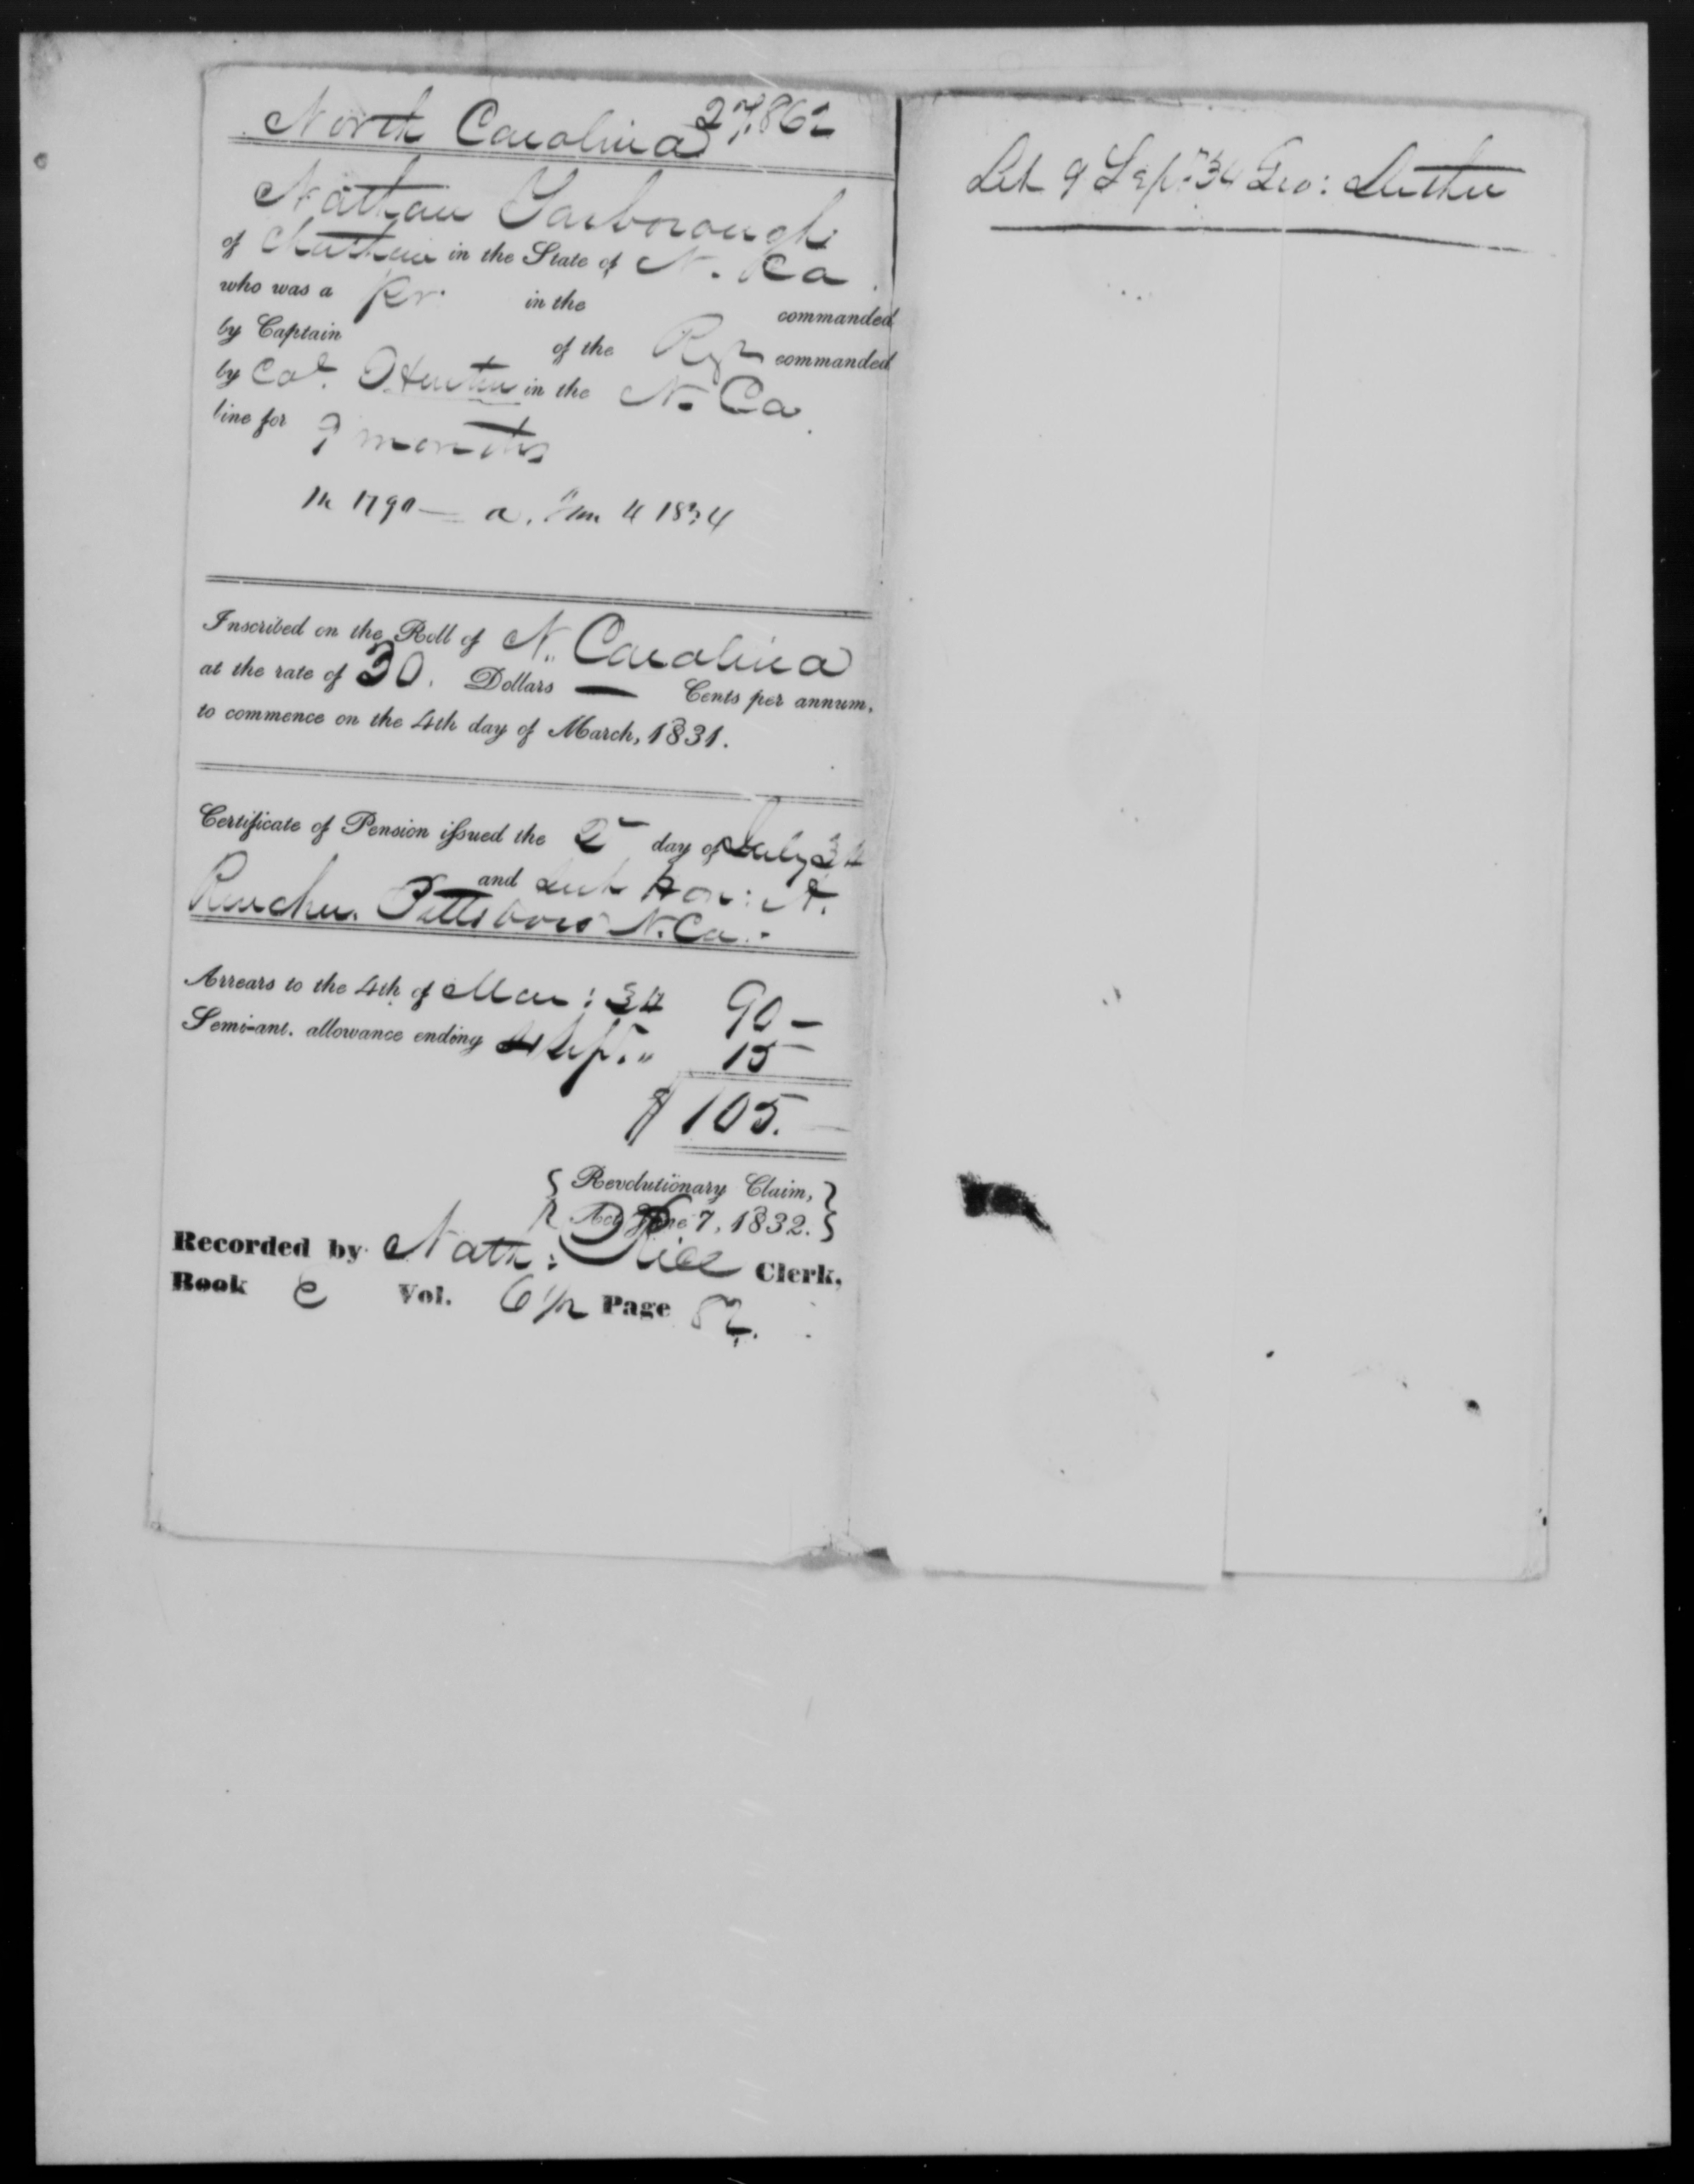 North Carolina 27,862
Nathan Yarborough
of Chatham in the State of N. Ca
who was a Pr. in the commanded
by Captain of the Regt commanded
by Col. in the N. Ca
line for 9 months
a. 4 1834
Inscribed on the Roll of N. Carolina
at the rate of 30. Dollars — Cents per annum,
to commence on the 4th day of March, 1831.
Certificate of Pension issued the 2 day of July 34
and sent Hon: A.
Rencher. Pittsboro N. Ca.
Arrears to the 4th of Mar: 34 90 —
Semi-anl. allowance ending 4 Sept. " 15 —
$ 105.
{ Revolutionary Claim, }
{ Act June 7, 1832. }
Recorded by Nath: Rice Clerk,
Book E Vol. 6 1/2 Page
Let 9 Sept 34 Geo: Luther